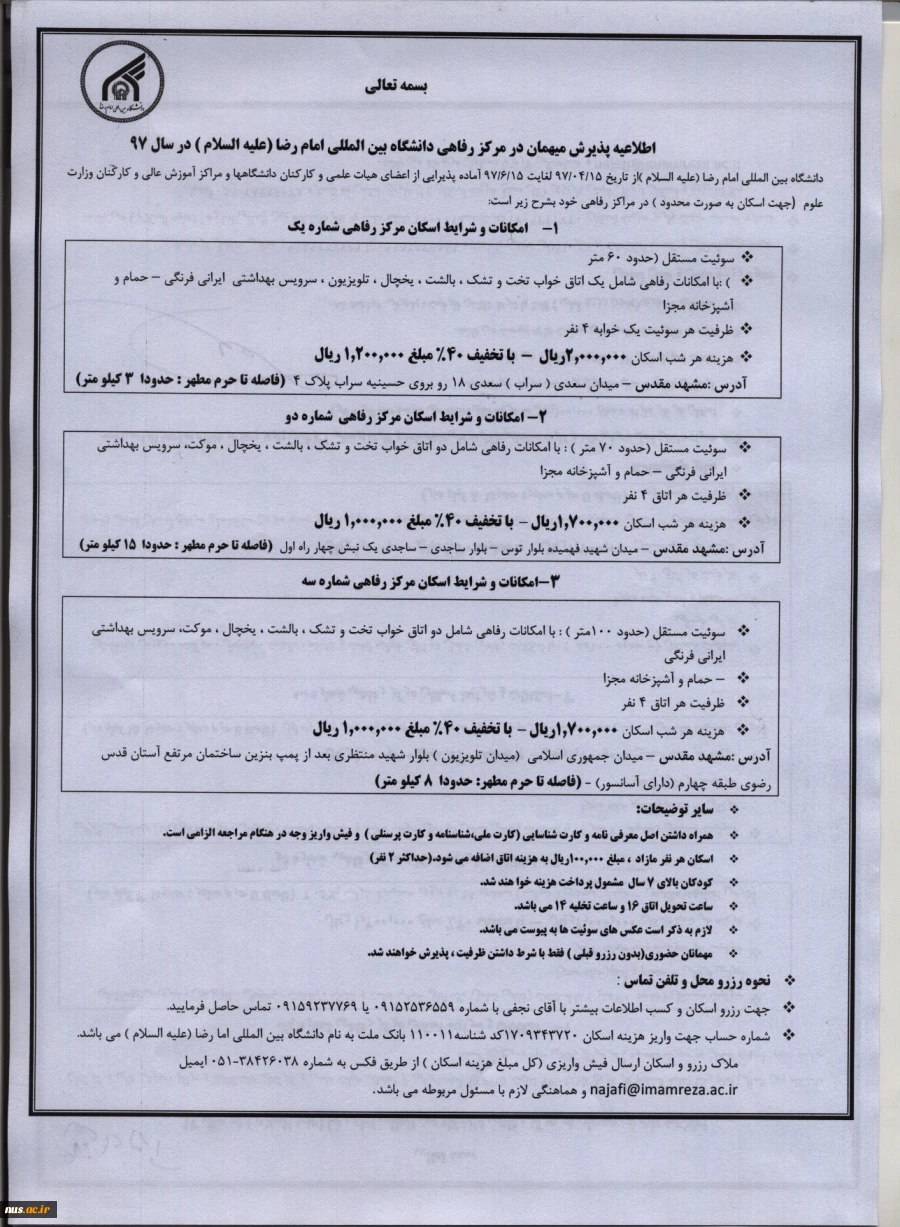 دانشگاه بین المللی امام رضا
بسمه تعالی
اطلاعیه پذیرش میهمان در مرکز رفاهی دانشگاه بین المللی امام رضا (علیه السلام ) در سال ۹۷
دانشگاه بین المللی امام رضا (علیه السلام )از تاریخ ۹۷/۰۴/۱۵ لغایت ۹۷/۶/۱۵ آماده پذیرایی از اعضای هیات علمی و کارکنان دانشگاهها و مراکز آموزش عالی و کارکنان وزارت
علوم (جهت اسکان به صورت محدود ) در مراکز رفاهی خود بشرح زیر است:
۱- امکانات و شرایط اسکان مرکز رفاهی شماره یک
❖ سوئیت مستقل (حدود ۶۰ متر
❖ ) :با امکانات رفاهی شامل یک اتاق خواب تخت و تشک ، بالشت ، یخچال ، تلویزیون ، سرویس بهداشتی ایرانی فرنگی – حمام و
آشپزخانه مجزا
❖ ظرفیت هر سوئیت یک خوابه ۴ نفر
❖ هزینه هر شب اسکان ۲,۰۰۰,۰۰۰ریال – با تخفیف ۴۰٪ مبلغ ۱,۲۰۰,۰۰۰ ریال
آدرس :مشهد مقدس – میدان سعدی ( سراب ) سعدی ۱۸ رو بروی حسینیه سراب پلاک ۴ (فاصله تا حرم مطهر : حدودا ۳ کیلو متر)
۲- امکانات و شرایط اسکان مرکز رفاهی شماره دو
❖ سوئیت مستقل (حدود ۷۰ متر ) : با امکانات رفاهی شامل دو اتاق خواب تخت و تشک ، بالشت ، یخچال ، موکت، سرویس بهداشتی
ایرانی فرنگی – حمام و آشپزخانه مجزا
❖ ظرفیت هر اتاق ۴ نفر
❖ هزینه هر شب اسکان ۱,۷۰۰,۰۰۰ریال – با تخفیف ۴۰٪ مبلغ ۱,۰۰۰,۰۰۰ ریال
آدرس :مشهد مقدس – میدان شهید فهمیده بلوار توس – بلوار ساجدی – ساجدی یک نبش چهار راه اول (فاصله تا حرم مطهر : حدودا ۱۵ کیلو متر)
۳- امکانات و شرایط اسکان مرکز رفاهی شماره سه
❖ سوئیت مستقل (حدود ۱۰۰متر ) : با امکانات رفاهی شامل دو اتاق خواب تخت و تشک ، بالشت ، یخچال ، موکت، سرویس بهداشتی
ایرانی فرنگی
❖ – حمام و آشپزخانه مجزا
❖ ظرفیت هر اتاق ۴ نفر
❖ هزینه هر شب اسکان ۱,۷۰۰,۰۰۰ریال – با تخفیف ۴۰٪ مبلغ ۱,۰۰۰,۰۰۰ ریال
آدرس :مشهد مقدس – میدان جمهوری اسلامی (میدان تلویزیون ) بلوار شهید منتظری بعد از پمپ بنزین ساختمان مرتفع آستان قدس
رضوی طبقه چهارم (دارای آسانسور) - (فاصله تا حرم مطهر: حدودا ۸ کیلو متر)
❖ سایر توضیحات:
❖ همراه داشتن اصل معرفی نامه و کارت شناسایی (کارت ملی،شناسنامه و کارت پرسنلی ) و فیش واریز وجه در هنگام مراجعه الزامی است.
❖ اسکان هر نفر مازاد ، مبلغ ۱۰۰,۰۰۰ریال به هزینه اتاق اضافه می شود.(حداکثر ۲ نفر)
❖ کودکان بالای ۷ سال مشمول پرداخت هزینه خوا هند شد.
❖ ساعت تحویل اتاق ۱۶ و ساعت تخلیه ۱۴ می باشد.
❖ لازم به ذکر است عکس های سوئیت ها به پیوست می باشد.
❖ مهمانان حضوری(بدون رزرو قبلی ) فقط با شرط داشتن ظرفیت ، پذیرش خواهند شد.
❖ نحوه رزرو محل و تلفن تماس :
❖ جهت رزرو اسکان و کسب اطلاعات بیشتر با آقای نجفی با شماره ۰۹۱۵۲۵۳۶۵۵۹ یا ۰۹۱۵۹۲۳۷۷۶۹ تماس حاصل فرمایید.
❖ شماره حساب جهت واریز هزینه اسکان ۱۷۰۹۳۴۳۷۲۰کد شناسه۱۱۰۰۱۱ بانک ملت به نام دانشگاه بین المللی اما رضا (علیه السلام ) می باشد.
ملاک رزرو و اسکان ارسال فیش واریزی (کل مبلغ هزینه اسکان ) از طریق فکس به شماره ۳۸۴۲۶۰۳۸-۰۵۱ ایمیل
najafi@imamreza.ac.ir و هماهنگی لازم با مسئول مربوطه می باشد.
nus.ac.ir